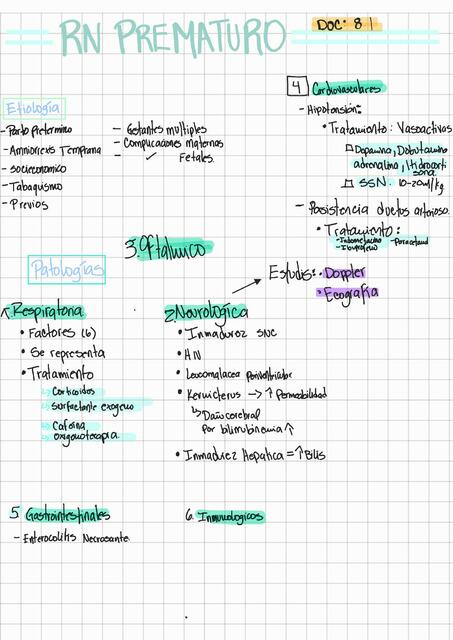 RN PREMATURO
DOC: 81
Etiología
- Parto pretermino
- Amniorrexis Temprana
- socieconomico
- Tabaquismo
- Previos
- Gestantes multiples
- Complicaciones maternas
- ✓ Fetales.
4 Cardiovasculares
- Hipotensión:
• Tratamiento: Vasoactivos
Dopamina, Dobutamina
adrenalina, Hidrocorti
sona
SSN. 10-20ml/kg.
- Persistencia ductus arterioso.
• Tratamiento:
- Indometacino - Paracetamol
- Ibuprofeno
3. Oftalmico
Patologías
Estudis: • Doppler
• Ecografia
1. Respiratoria
• Factores (6)
• Se representa
• Tratamiento
↳ Corticoides
↳ Surfactante exogeno
↳ Cafeina
↳ Oxigenoterapia
2. Neurológica
• Inmadurez SNC
• HIV
• Leucomalacea Periventricular
• Kernicterus → ↑ Permeabilidad
↳ Daño cerebral
por bilirrubinemia ↑
• Inmadurez Hepatica = ↑ Bilis
5. Gastrointestinales
- Enterocolitis Necrosante
6. Inmunologicos